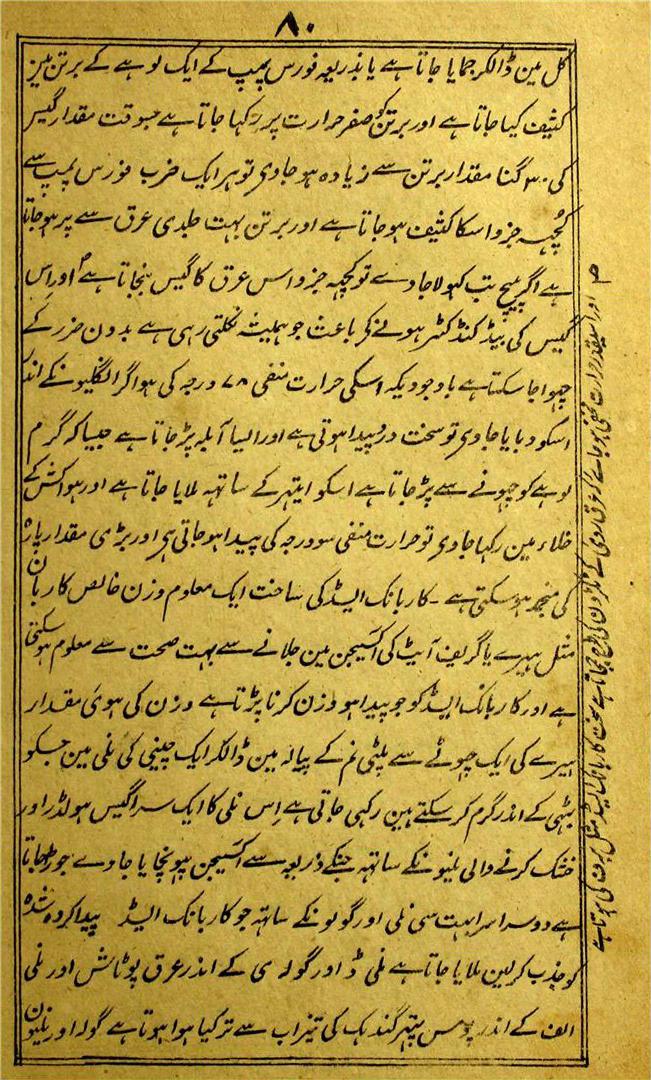 ۸۰
کل مین ڈالکر جمایا جاتا ہے یا بذریعہ فورس پمپ کے ایک لوہے کے برتن مین
کثیف کیا جاتا ہے اور برتن کو صفر حرارت پر رکہا جاتا ہے جسوقت مقدار گیس
کی ۳۰ گنا مقدار برتن سے زیادہ ہو جاوی تو ہر ایک ضرب فورس پمپ سے
کچہہ جزو اسکا کثیف ہو جاتا ہے اور برتن بہت جلدی عرق سے پر ہو جاتا
ہے اگر پیچ تب کہولا جاوے تو کچہہ جزو اس عرق کا گیس بنجاتا ہے اور اس
گیس کی بیڈ کنڈکٹر ہونے کے باعث جو ہمیشہ نکلتی رہی ہے بدون ضرر کے
چہوا جا سکتا ہے باوجودیکہ اسکی حرارت منفی ۷۸ درجہ کی ہو اگر انگلیونکے اندر
اسکو دبایا جاوی تو سخت درد پیدا ہوتی ہے اور ایسا آبلہ پڑ جاتا ہے جیسا کہ گرم
لوہے کو چہونے سے پڑ جاتا ہے اسکو ایتہر کے ساتہہ ملایا جاتا ہے اور ہوا کش کے
خلاء مین رکہا جاوی تو حرارت منفی سو درجہ کی پیدا ہو جاتی ہی اور بڑی مقدار پارہ
کی منجمد ہو سکتی ہے - کاربانک ایسڈ کی ساخت ایک معلوم وزن خالص کاربان
مثل ہیرے یا گریف آیٹ کی آکسیجن مین جلانے سے بہت صحت سے معلوم ہو سکتی
ہے اور کاربانک ایسڈ کو جو پیدا ہو وزن کرنا پڑتا ہے وزن کی ہوئی مقدار
ہیرے کی ایک چہوٹے سے پلٹی نم کے پیالہ مین ڈالکر ایک چینی کی نلی مین جسکو
بہٹی کے اندر گرم کر سکتے ہین رکہی جاتی ہے اس نلی کا ایک سرا گیس ہولڈر اور
خشک کرنے والی نلیونکے ساتہہ جنکے ذریعہ سے آکسیجن پہونچایا جاوے جوڑا جاتا
ہے دوسرا سرا بہت سی نلی اور گولونکے ساتہہ جو کاربانک ایسڈ پیدا کردہ شدہ
کو جذب کرلین ملایا جاتا ہے نلی ڈ اور گولہ ی کے اندر عرق پوٹاش اور نلی
الف کے اندر پومس پتہر گندہک کی تیزاب سے تر کیا ہوا ہوتا ہے گولہ اور نلیون
اور اسیقدر حرارت منفی ہو جاتے کہ عرق روئی کے ٹکڑون کی طرح جم جاتا ہے سخت کاربانک ایسڈ مثل برف کی ہوتا ہے